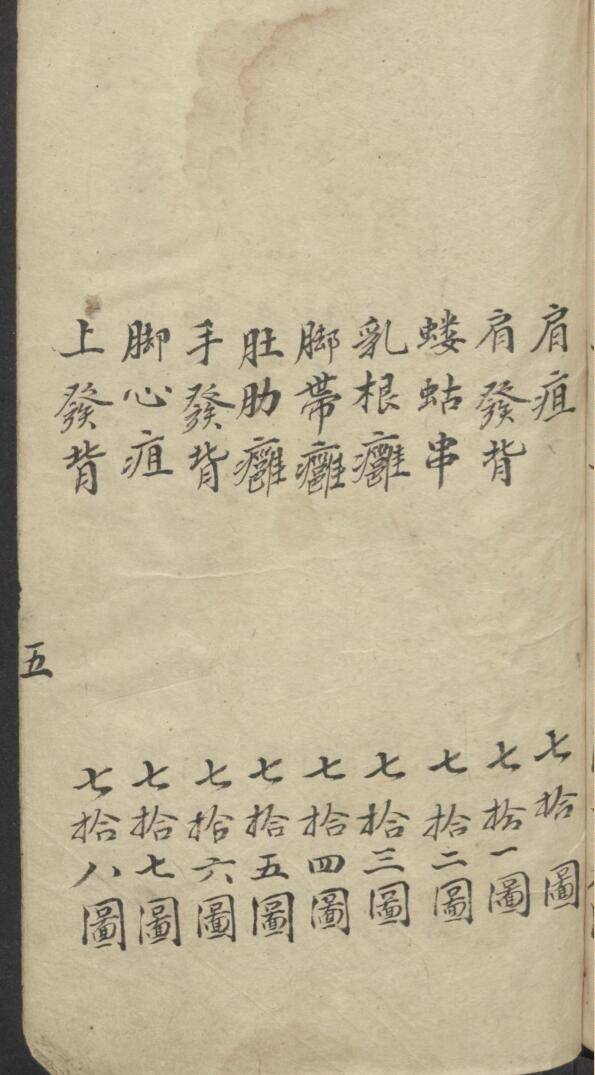 肩疽 七拾圖
肩發背 七拾一圖
蝼蛄串 七拾二圖
乳根癰 七拾三圖
脚帶癰 七拾四圖
肚肋癰 七拾五圖
手發背 七拾六圖
脚心疽 七拾七圖
上發背 七拾八圖
五